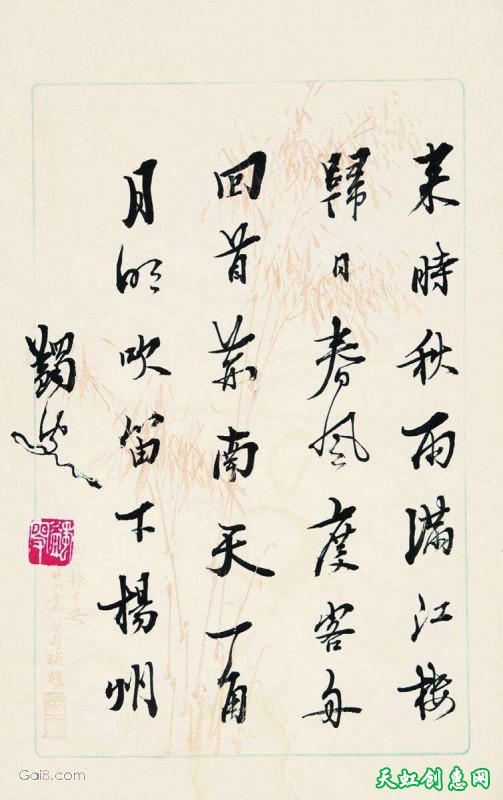 来時秋雨滿江樓
歸日春風度客舟
回首荊南天一角
月明吹笛下楊州
蠲叟
Gai8.com
天虹创惠网